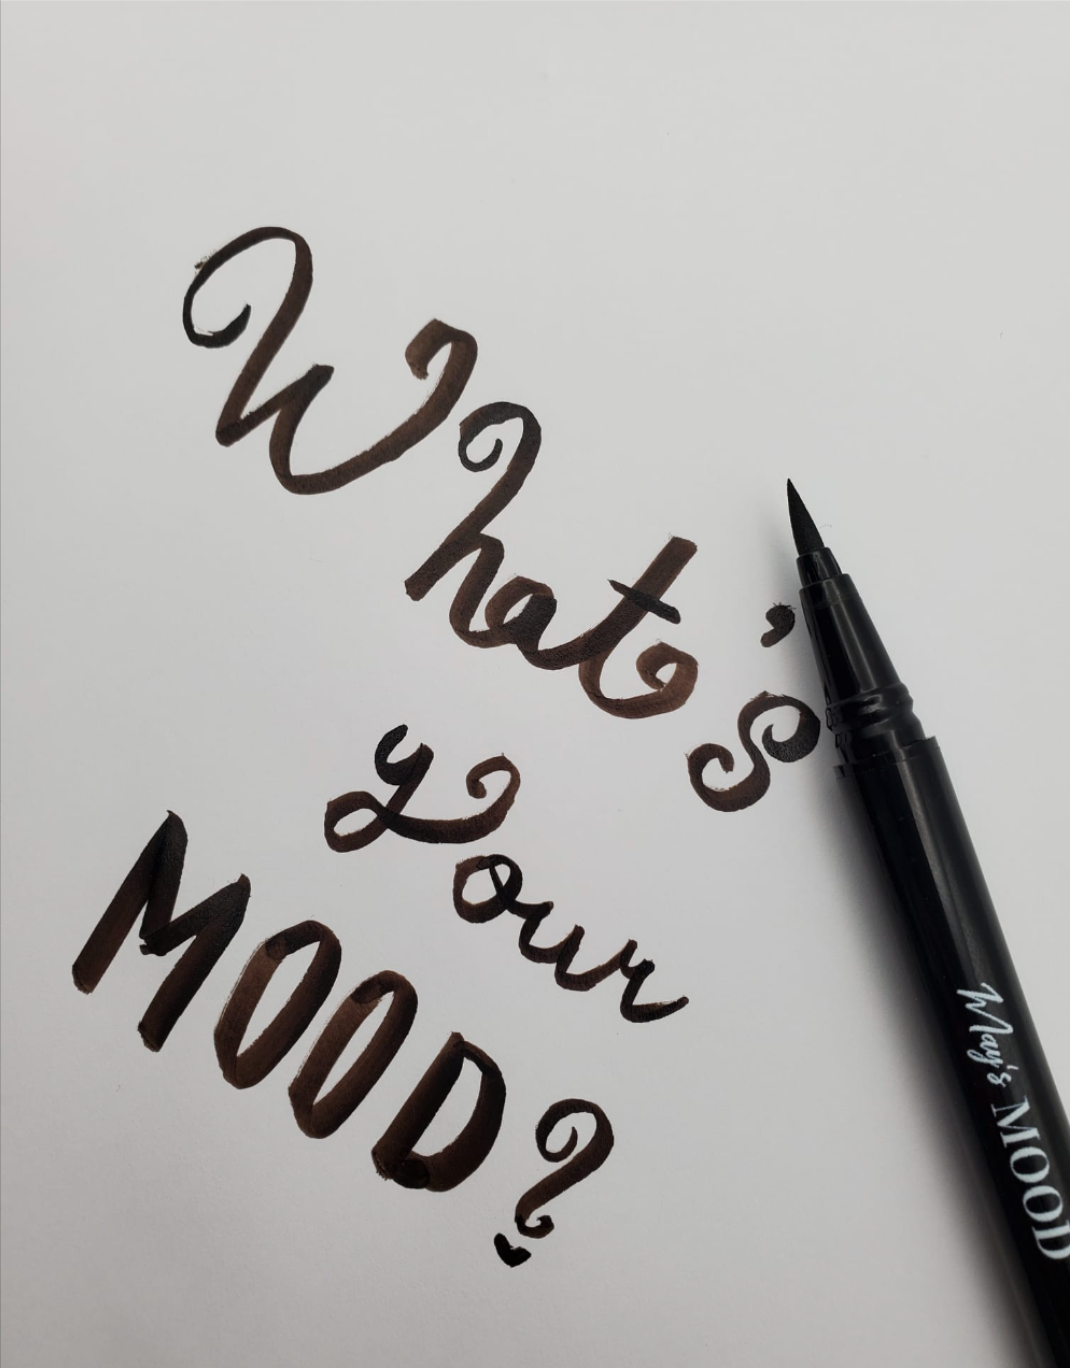 What's
your
MOOD?
May's MOOD